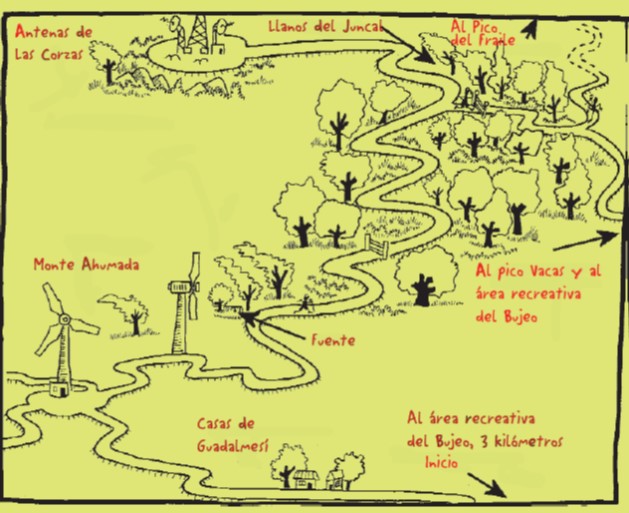 Antenas de
Las Corzas
Llanos del Juncal
Al Pico
del Fraile
Monte Ahumada
Al pico Vacas y al
área recreativa
del Bujeo
Fuente
Casas de
Guadalmesí
Al área recreativa
del Bujeo, 3 kilómetros
Inicio